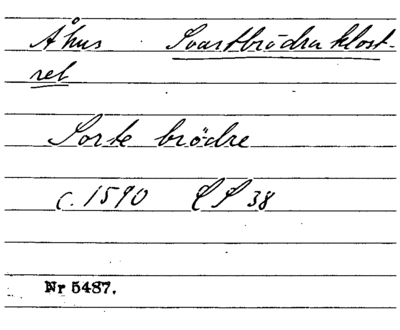 Åhus Svartbrödra klost-
ret
Sorte brödre
c. 1590 LS 38
Nr 5487.